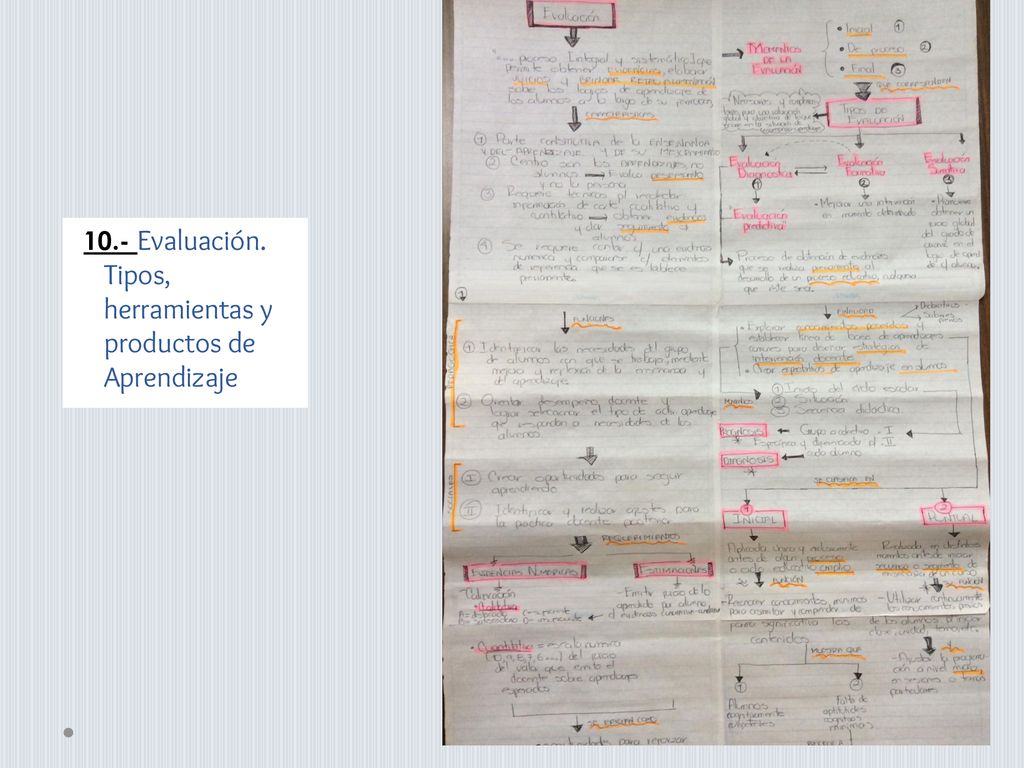 10.- Evaluación.
Tipos,
herramientas y
productos de
Aprendizaje
Evaluación
"... proceso integral y sistemático que
permite obtener evidencias, elaborar
juicios y brindar retroalimentación
sobre los logros de aprendizaje de
los alumnos a lo largo de su formación.
CARACTERÍSTICAS
① Parte constitutiva de la ENSEÑANZA
Y DEL APRENDIZAJE Y DE SU MEJORAMIENTO
② Centro son los APRENDIZAJES, no
alumnos → Evalúa desempeño
y no la persona
③ Requiere técnicas p/ recolectar
información de corte cualitativo y
cuantitativo → obtener evidencias
y dar seguimiento a
alumnos
④ Se requiere contar c/ una evidencia
numérica y compararse c/ elementos
de referencia que se establece
previamente.
①
FUNCIONES
① Identificar las necesidades del grupo
de alumnos con que se trabaja, mediante
mejora y reflexión de la enseñanza y
del aprendizaje
② Orientar desempeño docente y
lograr seleccionar el tipo de activ. aprendizaje
que respondan a necesidades de los
alumnos.
SOCIALES
Ⅰ Crear oportunidades para seguir
aprendiendo
Ⅱ Identificar y realizar ajustes para
la práctica docente
REQUERIMIENTOS
EVIDENCIAS NUMÉRICAS
ESTIMACIONES
Calificación
• Cualitativa
- Emitir juicio de lo
aprendido por alumno,
• Cuantitativa = escala numérica
[10, 9, 8, 7, 6...] del juicio
del valor que emite el
docente sobre aprendizajes
esperados
para reforzar
MOMENTOS
DE LA
EVALUACIÓN
• Inicial ①
• De proceso ②
• Final ③
QUE CORRESPONDEN
TIPOS DE
EVALUACIÓN
Evaluación
Diagnóstica
①
Evaluación
Formativa
②
Evaluación
Sumativa
③
"Evaluación
predictiva"
• Mejorar una intervención
en momento determinado
obtener un
juicio global
del grado de
avance en el
Proceso de obtención de evidencias
que se realiza previamente al
desarrollo de un proceso educativo, cualquiera
que éste sea.
FINALIDAD
• Explorar conocimientos poseídos y
establecer línea de base de aprendizajes
comunes para diseñar estrategias de
intervención docente
• Crear expectativas de aprendizaje en alumnos
MOMENTOS
① Inicio del ciclo escolar
② Situación
③ Secuencia didáctica.
PROGNOSIS ← Grupo o colectivo . I
Específica y diferenciada p/ . II
DIAGNOSIS ← cada alumno
SE CLASIFICA EN
①
INICIAL
②
PUNTUAL
Aplicada única y exclusivamente
antes de algún proceso
o ciclo educativo amplio
FUNCIÓN
- Reconocer conocimientos mínimos
para asimilar y comprender de
forma significativa los
contenidos
Realizada en distintos
momentos antes de iniciar
secuencia o segmento de
FUNCIÓN
- Utilizar continuamente
los conocimientos previos
de los alumnos
clase, unidad, tema, etc.
- Ajustar la
a nivel micro,
en sesiones o temas
particulares
MUESTRA QUE
①
②
Alumnos
cognitivamente
competentes
Falta de
aptitudes
cognitivas
mínimas